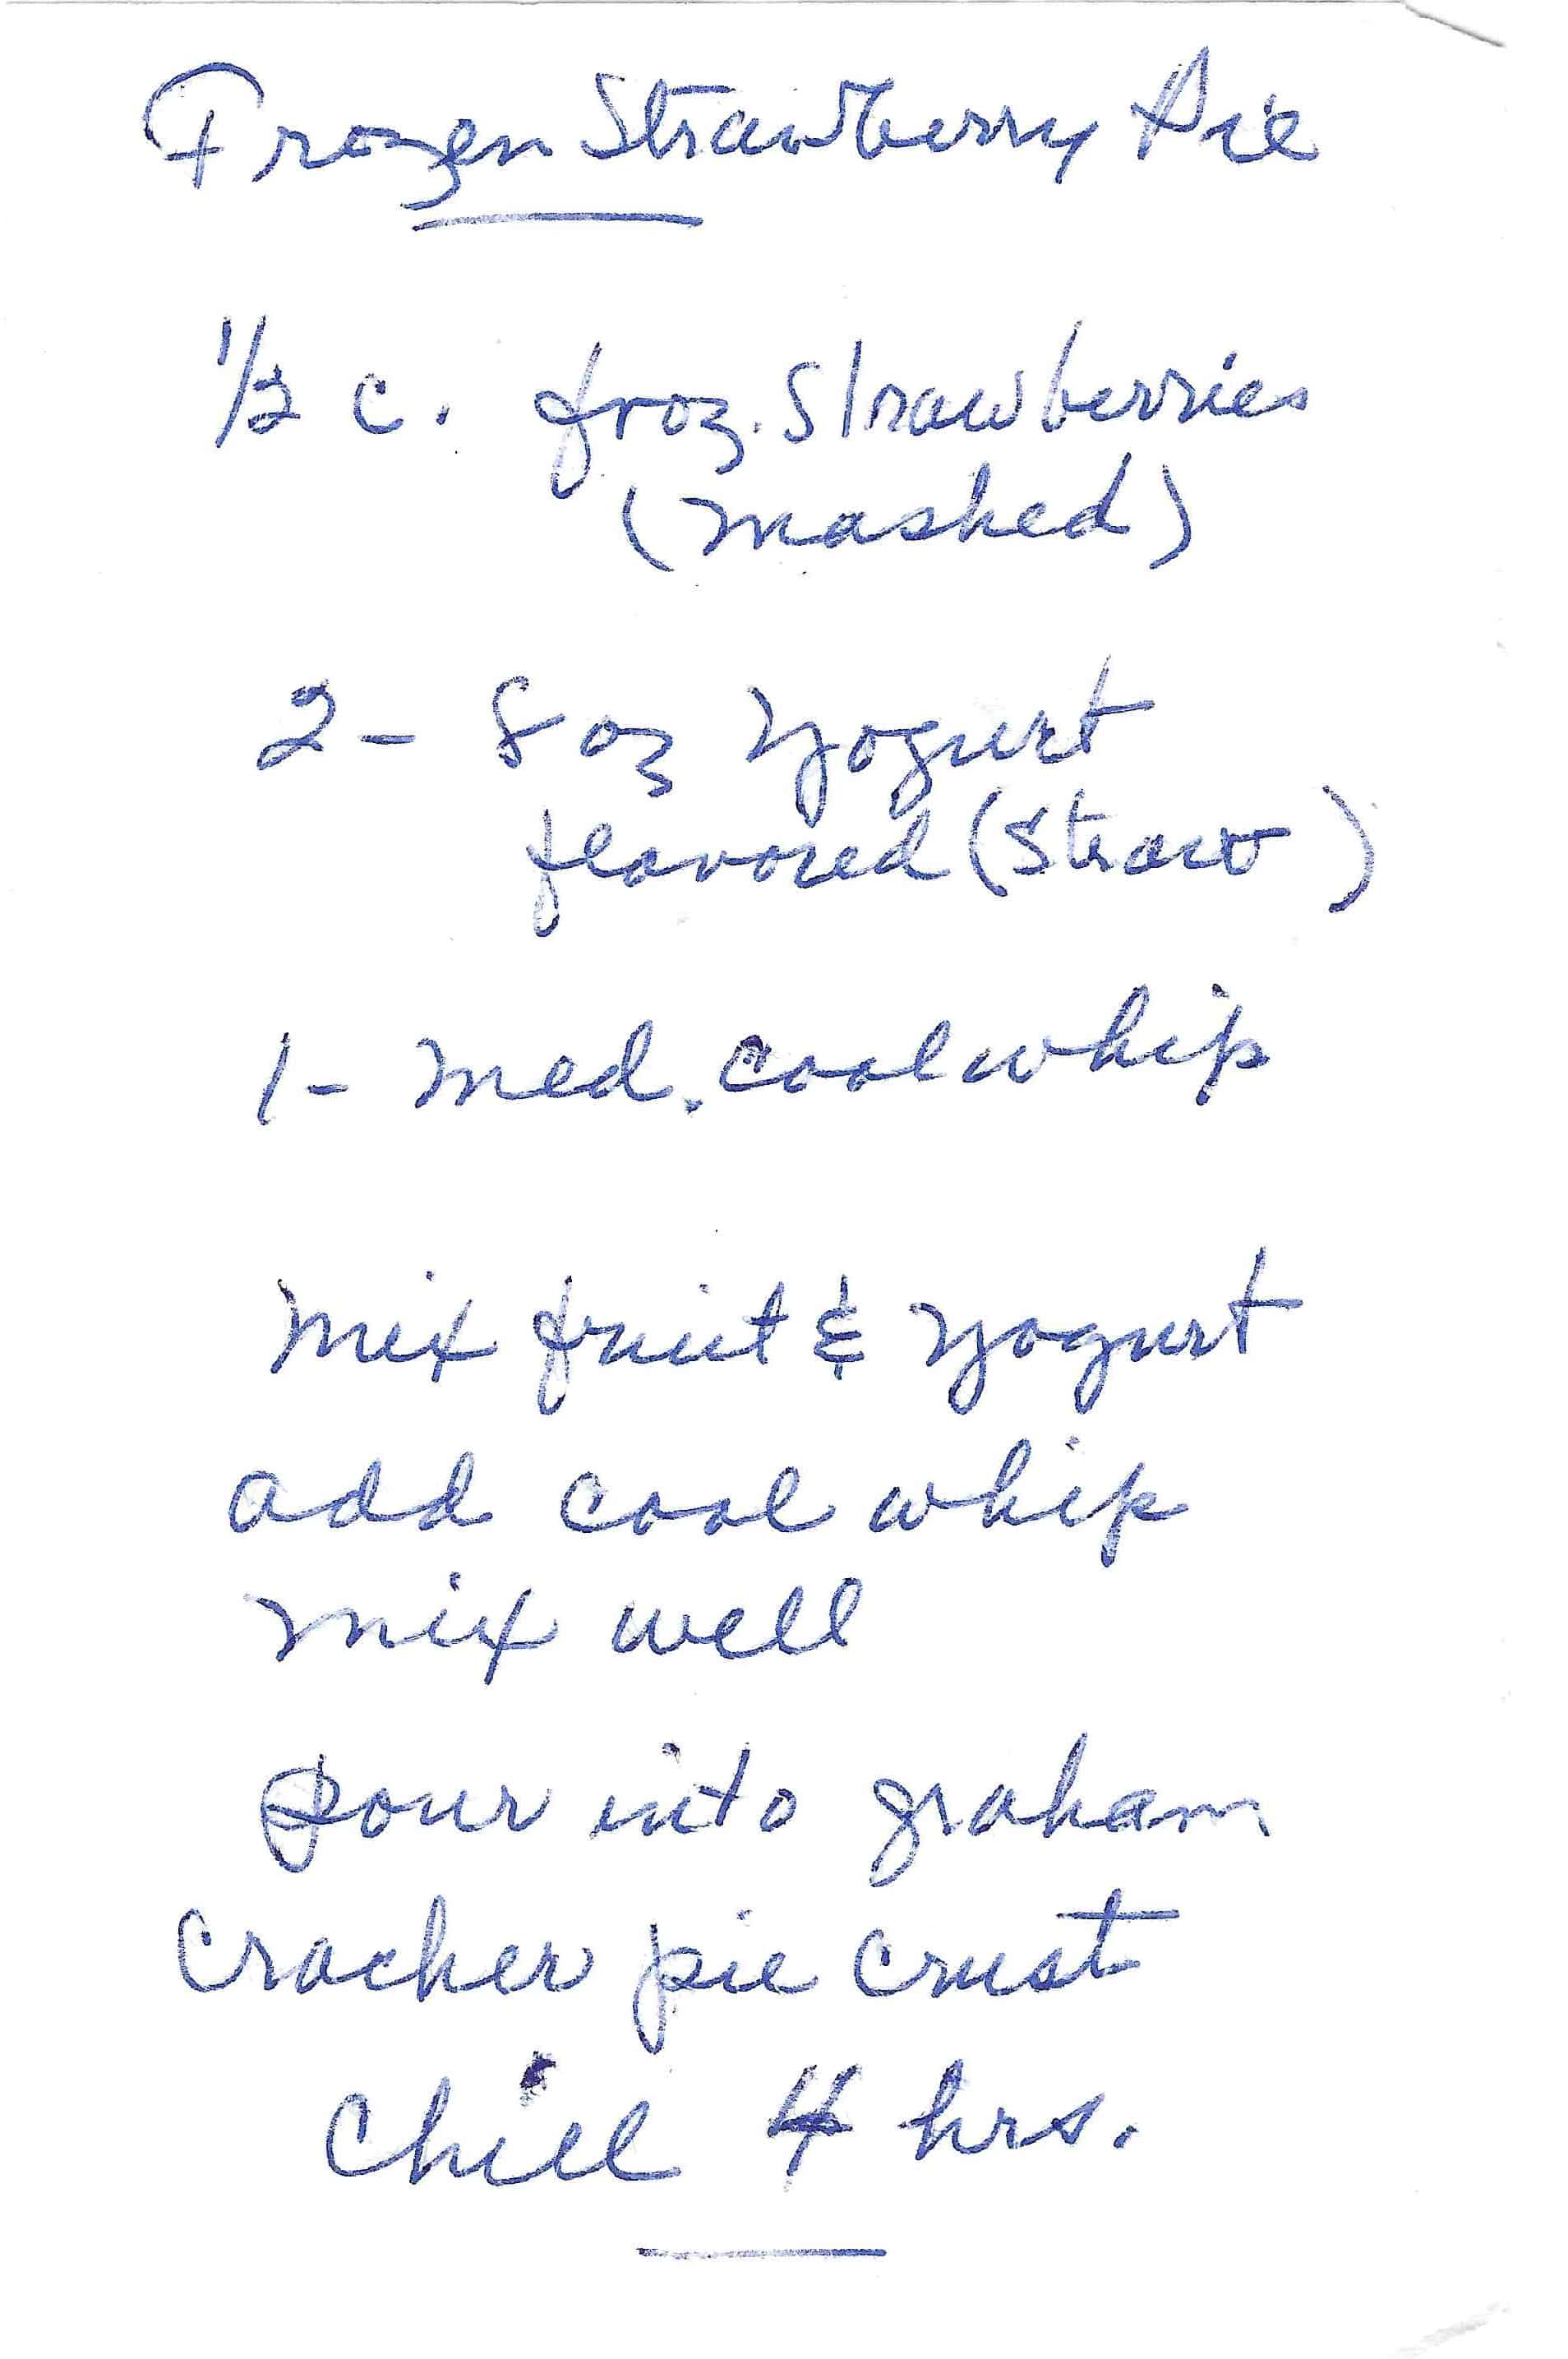 Frozen Strawberry Pie
1/2 c. froz. Strawberries
(mashed)
2 - 8 oz yogurt
flavored (Straw )
1 - med. coolwhip
mix fruit & yogurt
add cool whip
mix well
pour into graham
cracker pie crust
Chill 4 hrs.